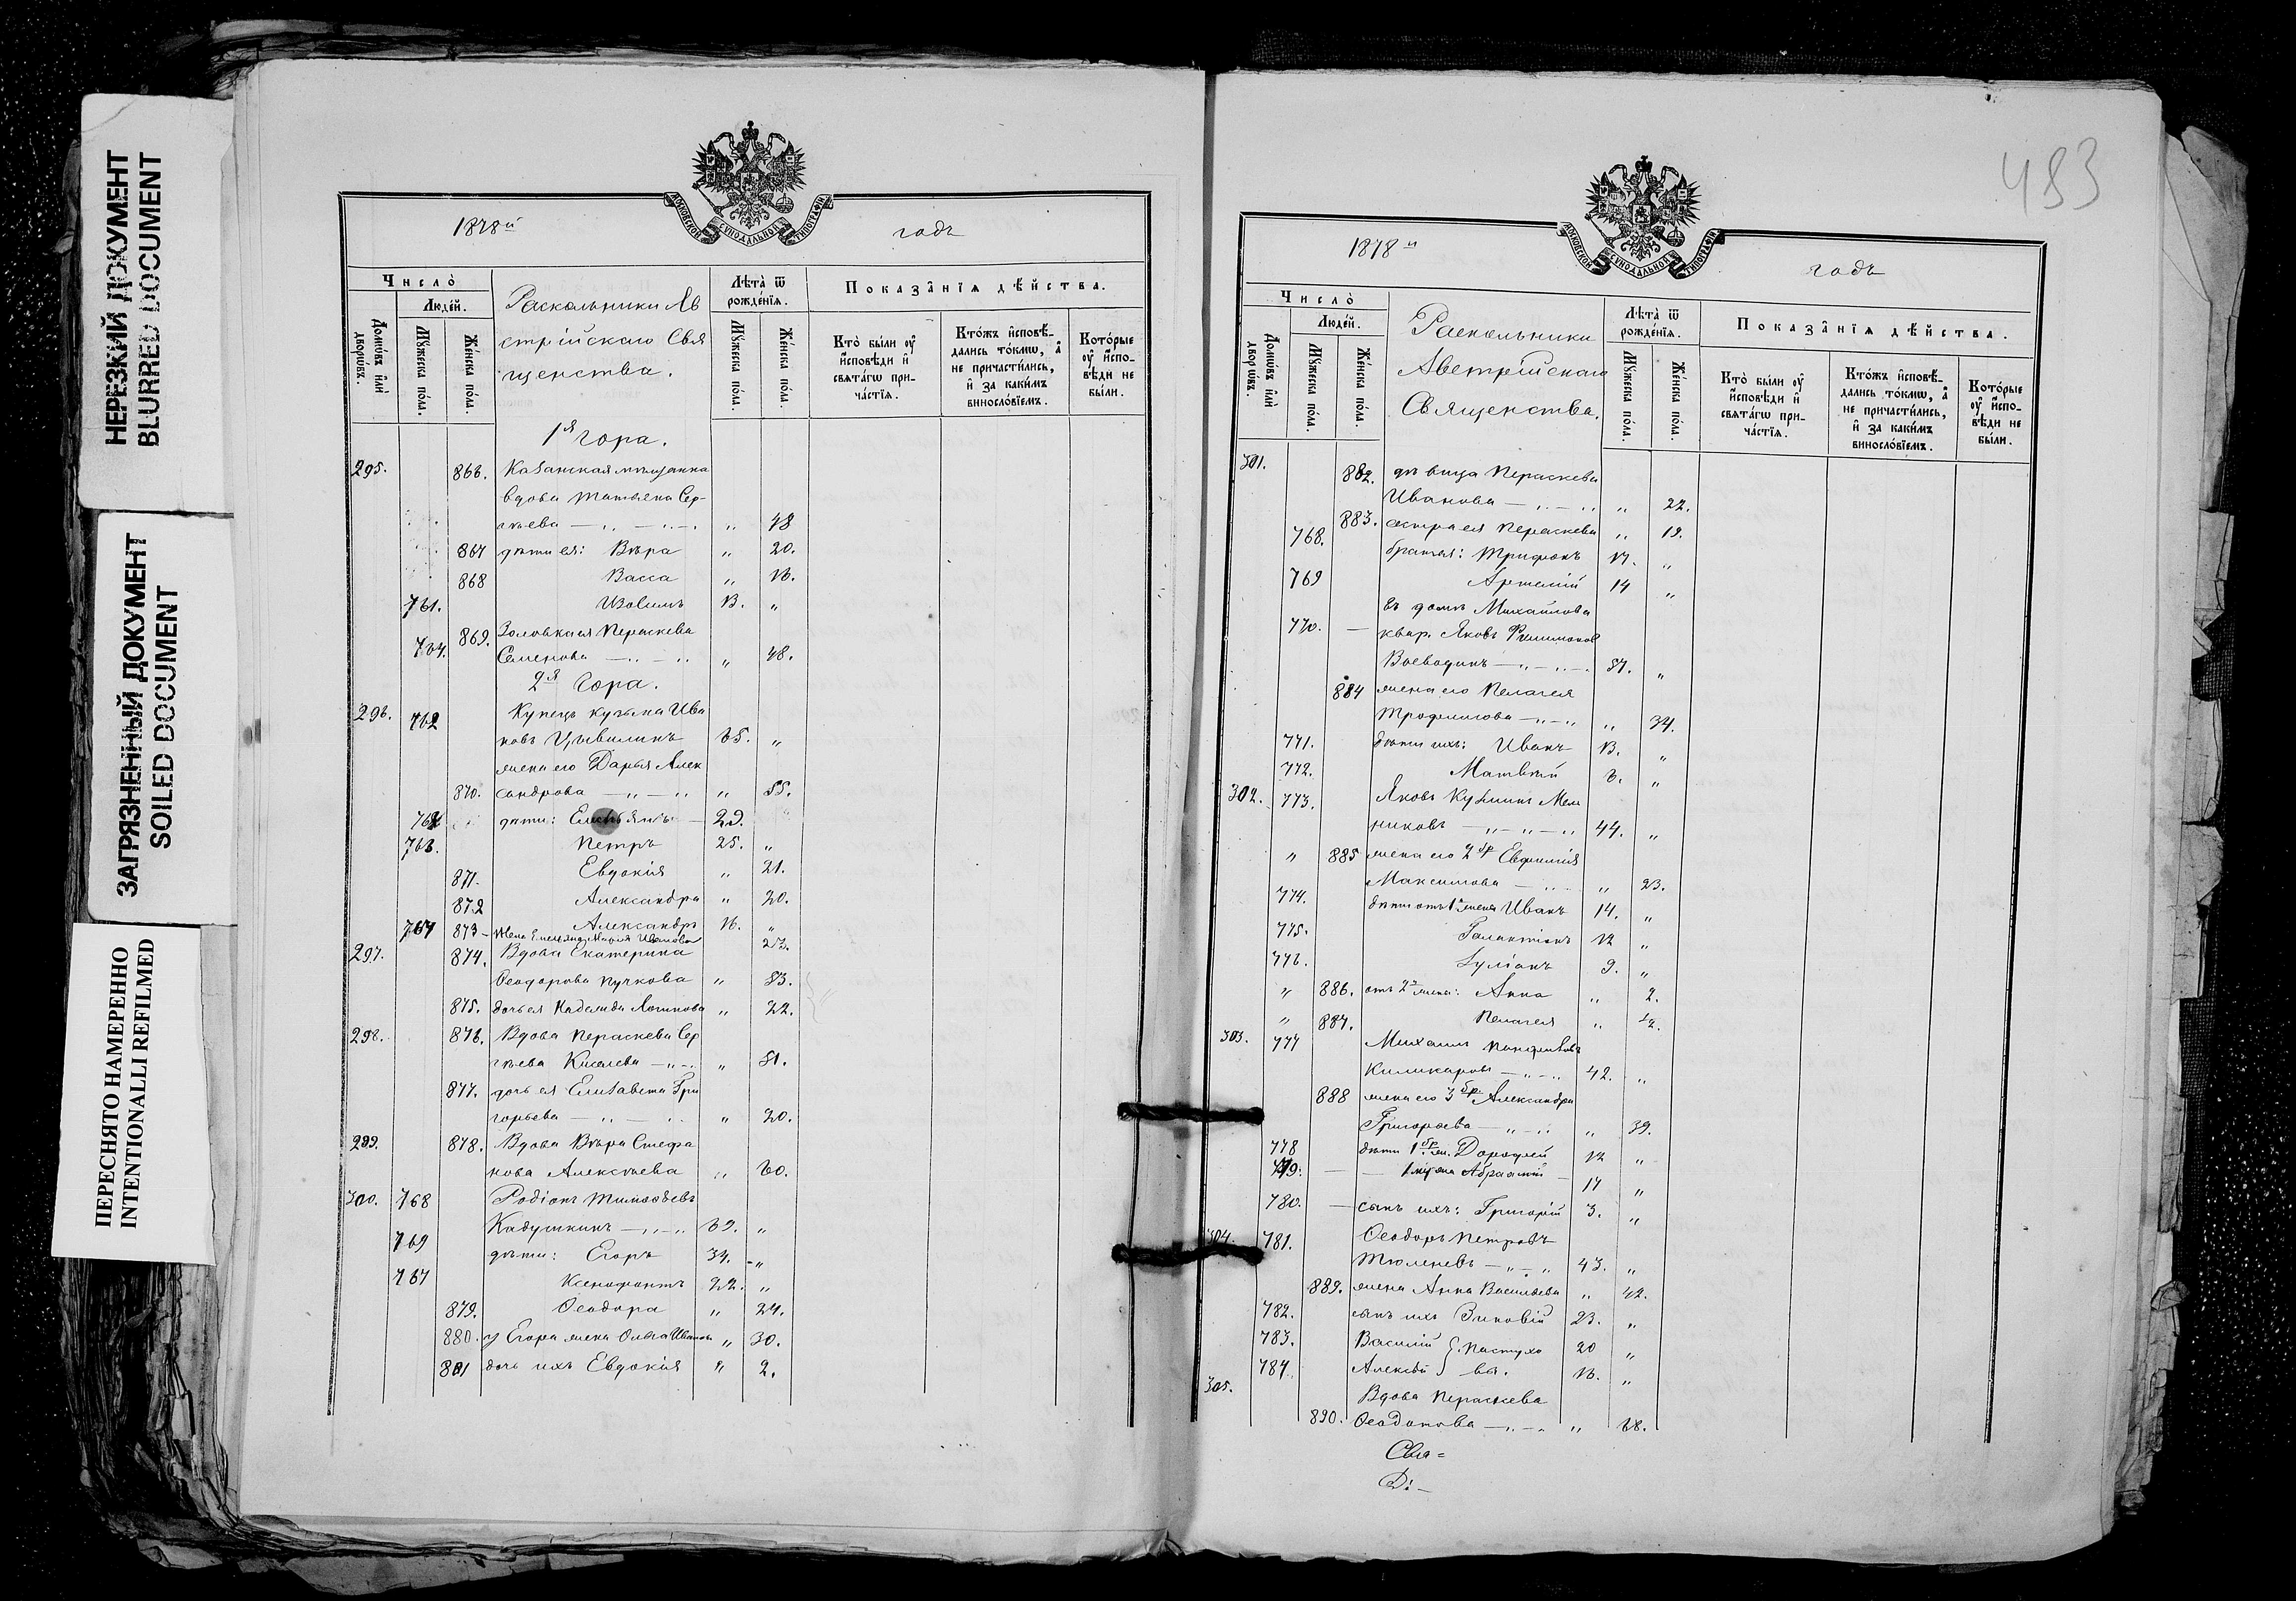 НЕРЕЗКИЙ ДОКУМЕНТ
BLURRED DOCUMENT
ЗАГРЯЗНЕННЫЙ ДОКУМЕНТ
SOILED DOCUMENT
ПЕРЕСНЯТО НАМЕРЕННО
INTENTIONALLI REFILMED
МОСКОВСКОЙ СѴНОДАЛЬНОЙ ТИПОГРАФІИ
1878й годъ
Число̀
Люде́й.
Домѡ́въ и҆лѝ дворѡ́въ.
Мꙋ́жеска по́ла.
Же́нска по́ла.
Раскольники Ав
стрійскаго Свя
щенства.
Лѣта̀ ѿ рожде́нїѧ.
Мꙋ́жеска по́ла.
Же́нска по́ла.
Показа̑нїѧ дѣ́йства.
Кто̀ бы́ли ᲂу҆ и҆сповѣди и҆ свѧта́гѡ причастїѧ.
Кто́жъ и҆сповѣ́дались то́кмѡ, а҆ не причасти́лись, и҆ за каки́мъ винослѡ́вїемъ.
Кото́рые ᲂу҆ и҆сповѣди не бы́ли.
1я гора.
295. 866. Казанская мѣщанка
вдова Татьяна Сер-
гѣева " 48
867 дѣти ея: Вѣра " 20.
868 Васса " 16.
761. 13. "
869. Золовка ея Пераскева
764. Семенова " 48.
2я Гора.
296. 762 Купецъ Кузьма Ива
новъ Цывилинъ 65. "
жена его Дарья Алек
870. сандрова " 55.
дѣти: Емельянъ 29.
763. Петръ 25. "
871. Евдокія " 21.
872 Александра " 20.
767 Александръ 16. "
873 Жена Емельяна Марія Иванова 23.
297. 874. Вдова Екатерина
Ѳеодорова Пучкова " 53.
875. дочь ея Надежда Логинова " 22.
298. 876. Вдова Пераскева Сер
гѣева Киселева " 51.
877. дочь ея Елизавета Гри
горьева " 20.
299. 878. Вдова Вѣра Стефа
нова Алексѣева " 60.
300. 768 Родіонъ Тимоѳѣевъ
Кадушкинъ 69. "
769 дѣти: Егоръ 34. "
767 Ксенофонтъ 22. "
879. Ѳеодора " 24.
880. у Егора жена Ольга Иванова " 30.
881 дочь ихъ Евдокія " 2.
483
МОСКОВСКОЙ СѴНОДАЛЬНОЙ ТИПОГРАФІИ
1878й годъ
Число̀
Люде́й.
Домѡ́въ и҆лѝ дворѡ́въ.
Мꙋ́жеска по́ла.
Же́нска по́ла.
Раскольники
Австрійскаго
Священства.
Лѣта̀ ѿ рожде́нїѧ.
Мꙋ́жеска по́ла.
Же́нска по́ла.
Показа̑нїѧ дѣ́йства.
Кто̀ бы́ли ᲂу҆ и҆сповѣди и҆ свѧта́гѡ причастїѧ.
Кто́жъ и҆сповѣ́дались то́кмѡ, а҆ не причасти́лись, и҆ за каки́мъ винослѡ́вїемъ.
Кото́рые ᲂу҆ и҆сповѣди не бы́ли.
301. 882. дѣвица Пераскева
Иванова " 22.
883. сестра ея Пераскева " 19.
768. братья: Трифонъ 17. "
769 Артемій 14 "
въ домѣ Михайлова
770. квар. Яковъ Филимонов
Воеводинъ 37. "
884 жена его Пелагея
Трофимова " 34.
771. дѣти ихъ: Иванъ 13. "
772. Матвѣй 6. "
302. 773. Яковъ Кузминъ Мель
никовъ 44. "
" 885 жена его 2 бр Евфимія
Максимова " 23.
774. дѣти отъ 1й жены Иванъ 14. "
775. Галактіонъ 12 "
776. Іуліанъ 9. "
" 886. отъ 2й жены: Анна " 2.
" 887. Пелагея " 1/2.
303. 777 Михаилъ
42. "
888 жена его 3 бр. Александра
Григорьева " 39.
778 дѣти 1 бр. Дорофей 12 "
779. Авраамій 17 "
780. сынъ ихъ: Григорій 3. "
304. 781. Ѳеодоръ Петровъ
Тюленевъ 43. "
889. жена Анна Васильева " 42.
782. сынъ ихъ Зиновій 23. "
783. Василій } Пастухо 20 "
784. Алексѣй } вы. 16. "
305. Вдова Пераскева
890. Ѳеодотова " 68.
Свя=
Д:-